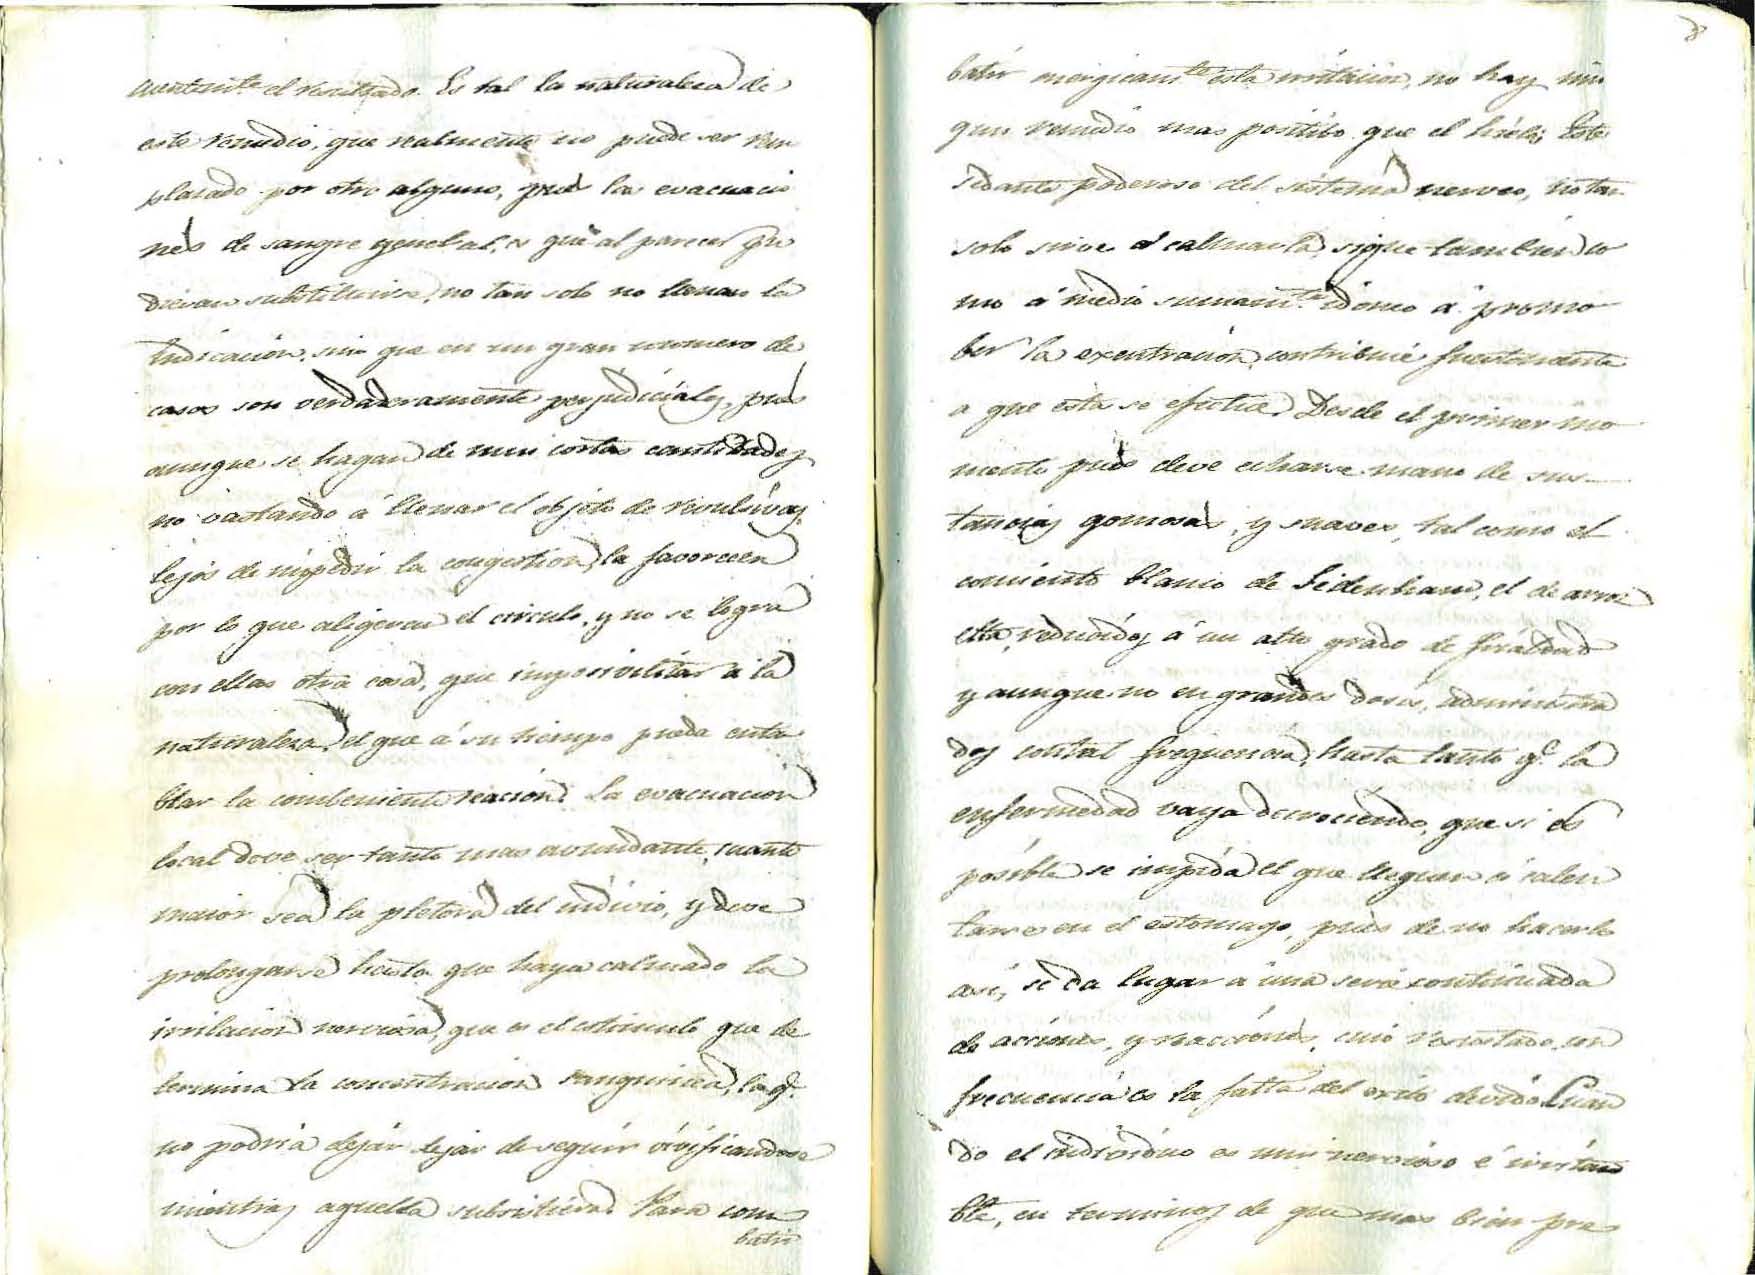 el resultado. Es tal la naturaleza de
este remedio, que realmente no puede ser rem
plasado por otro alguno, pues las evacuacio
nes de sangre general.es que al parecer pu
dieran substituirse, no tan solo no llenan la
indicacion, sino que en un gran numero de
casos son verdaderamente perjudiciales, pues
aunque se hagan de mui cortas cantidades
no vastando á llenar el objeto de revulsivas,
lejos de impedir la congestion, la favorecen
por lo que aligeran el circulo, y no se logra
con ellas otra cosa, que imposivilitar a la
naturalesa el que á su tiempo pueda enta
blar la combeniente reacion. La evacuacion
local deve ser tanto mas avundante, cuanto
maior sea la pletora del indivio, y deve
prolongarse hasta que haya calmado la
irrilacion nerviosa, que es el estimulo que de
termina la concentracion sanguinea, la q.e
no podria dejar dejar de seguir vivificandose
mientras aquella subsistiera. Para com
batir
8
batir energicam.te esta irritacion, no hay nin
gun remedio mas positivo que el hielo; Este
sedante poderoso del sistema nerveo, no tan
solo sirve á calmarla, sique tambien co
mo á medio sumam.te idoneo á promo
ber la exentracion, contribuié fuertemente
a que esta se efectue. Desde el primer mo
mento pues deve echarse mano de sus-
tancias gomosas, y suaves, tal como el
comiento blanco de Sidenham, el de arroz
etta, reducidos á un alto grado de frialdad
y aunque no en grandes dosis, administra
dos contal frequencia, hasta tanto q.e la
enfermedad vaya decreciendo, que si es
posible se impida el que lleguen á calen
tarse en el estomago, pues de no hacerlo
asi, se da lugar a una serie continuada
de acciones, y reacciones, cuio resultado con
frecuencia es la falta del exito devido. Cuan
do el individuo es mui nervioso é irrita
ble, en terminos de que mas bien pre